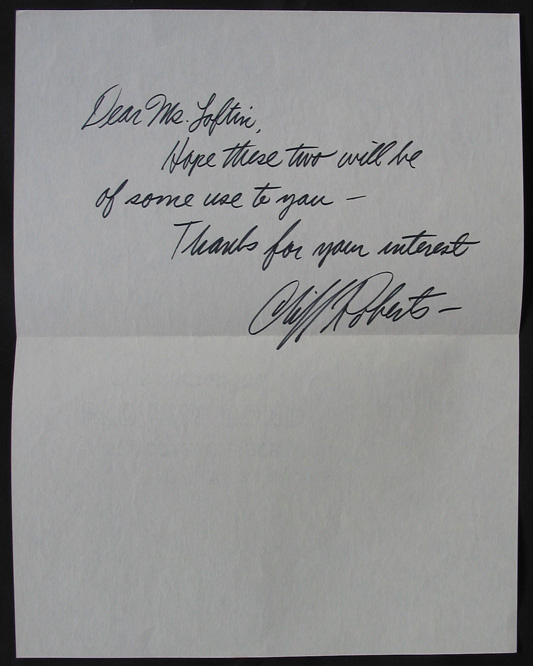 Dear Ms. Loftin,
Hope these two will be
of some use to you —
Thanks for your interest
Cliff Roberts —